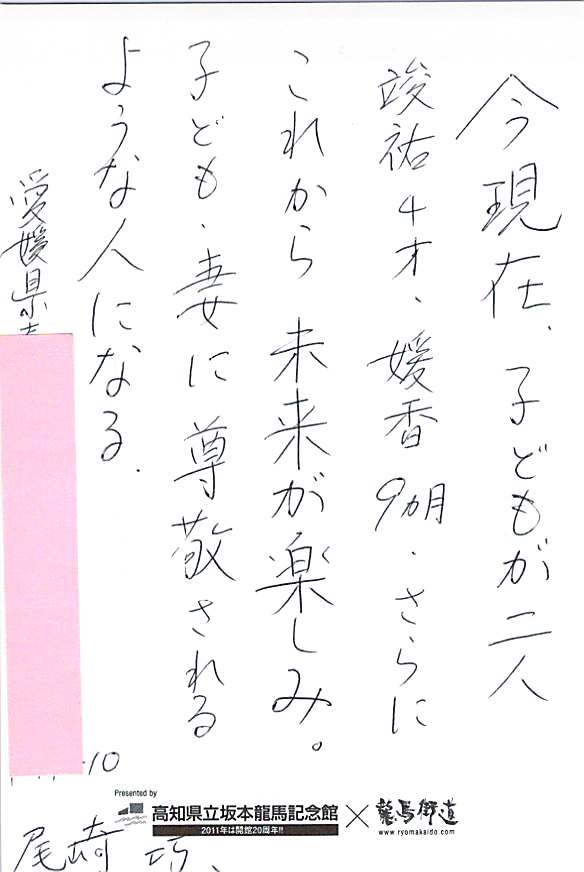 今現在、子どもが二人
竣祐4才、媛香9ヵ月.さらに
これから未来が楽しみ。
子ども、妻に尊敬される
ような人になる.
愛媛県
-10
尾崎 巧
Presented by
高知県立坂本龍馬記念館
2011年は開館20周年!!
×
龍馬街道
www.ryomakaido.com